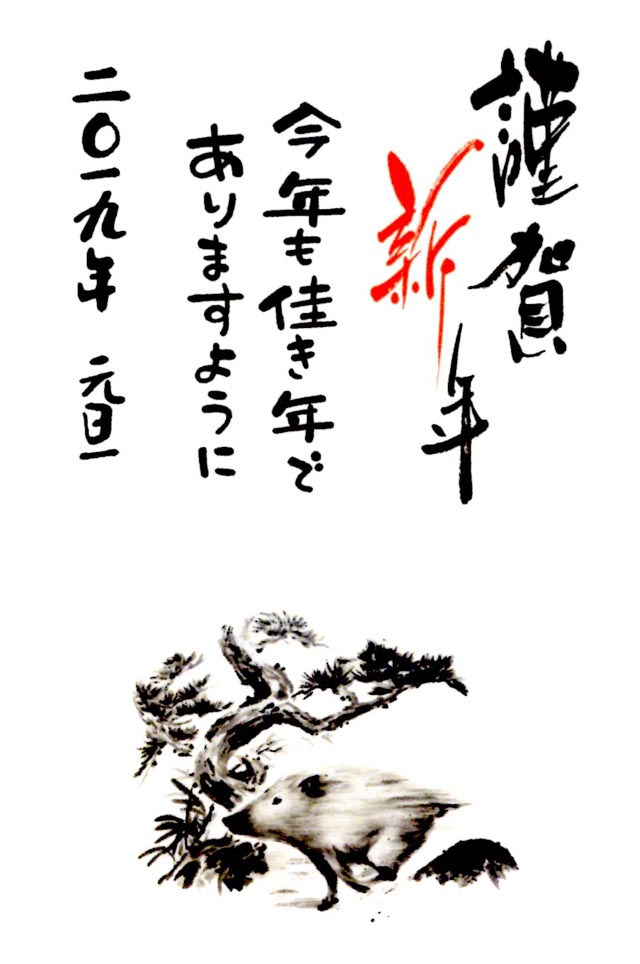 謹賀
新年
今年も佳き年で
ありますように
二〇一九年 元旦